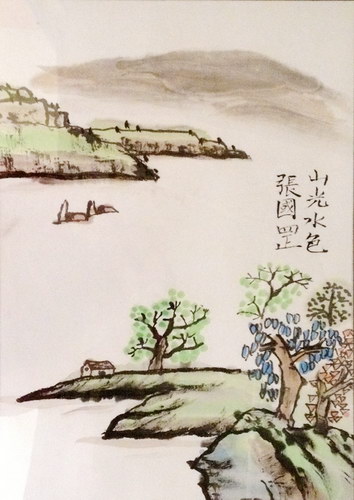 山光水色
張國罡